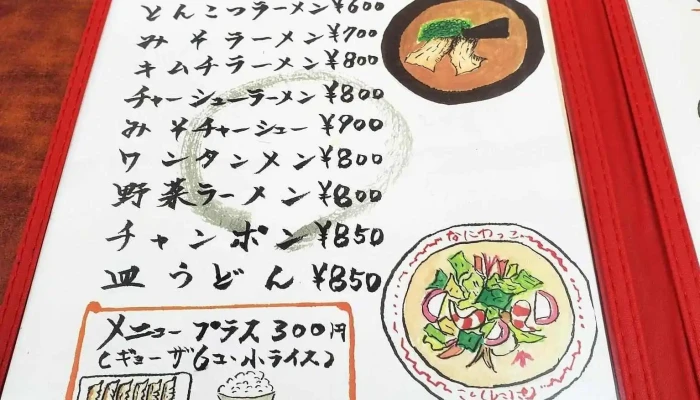 とんこつラーメン ¥600
みそラーメン ¥700
キムチラーメン ¥800
チャーシューラーメン ¥800
みそチャーシュー ¥900
ワンタンメン ¥800
野菜ラーメン ¥800
チャンポン ¥850
皿うどん ¥850
メニュープラス300円
(ギョーザ6コ・小ライス)
なにわっこ